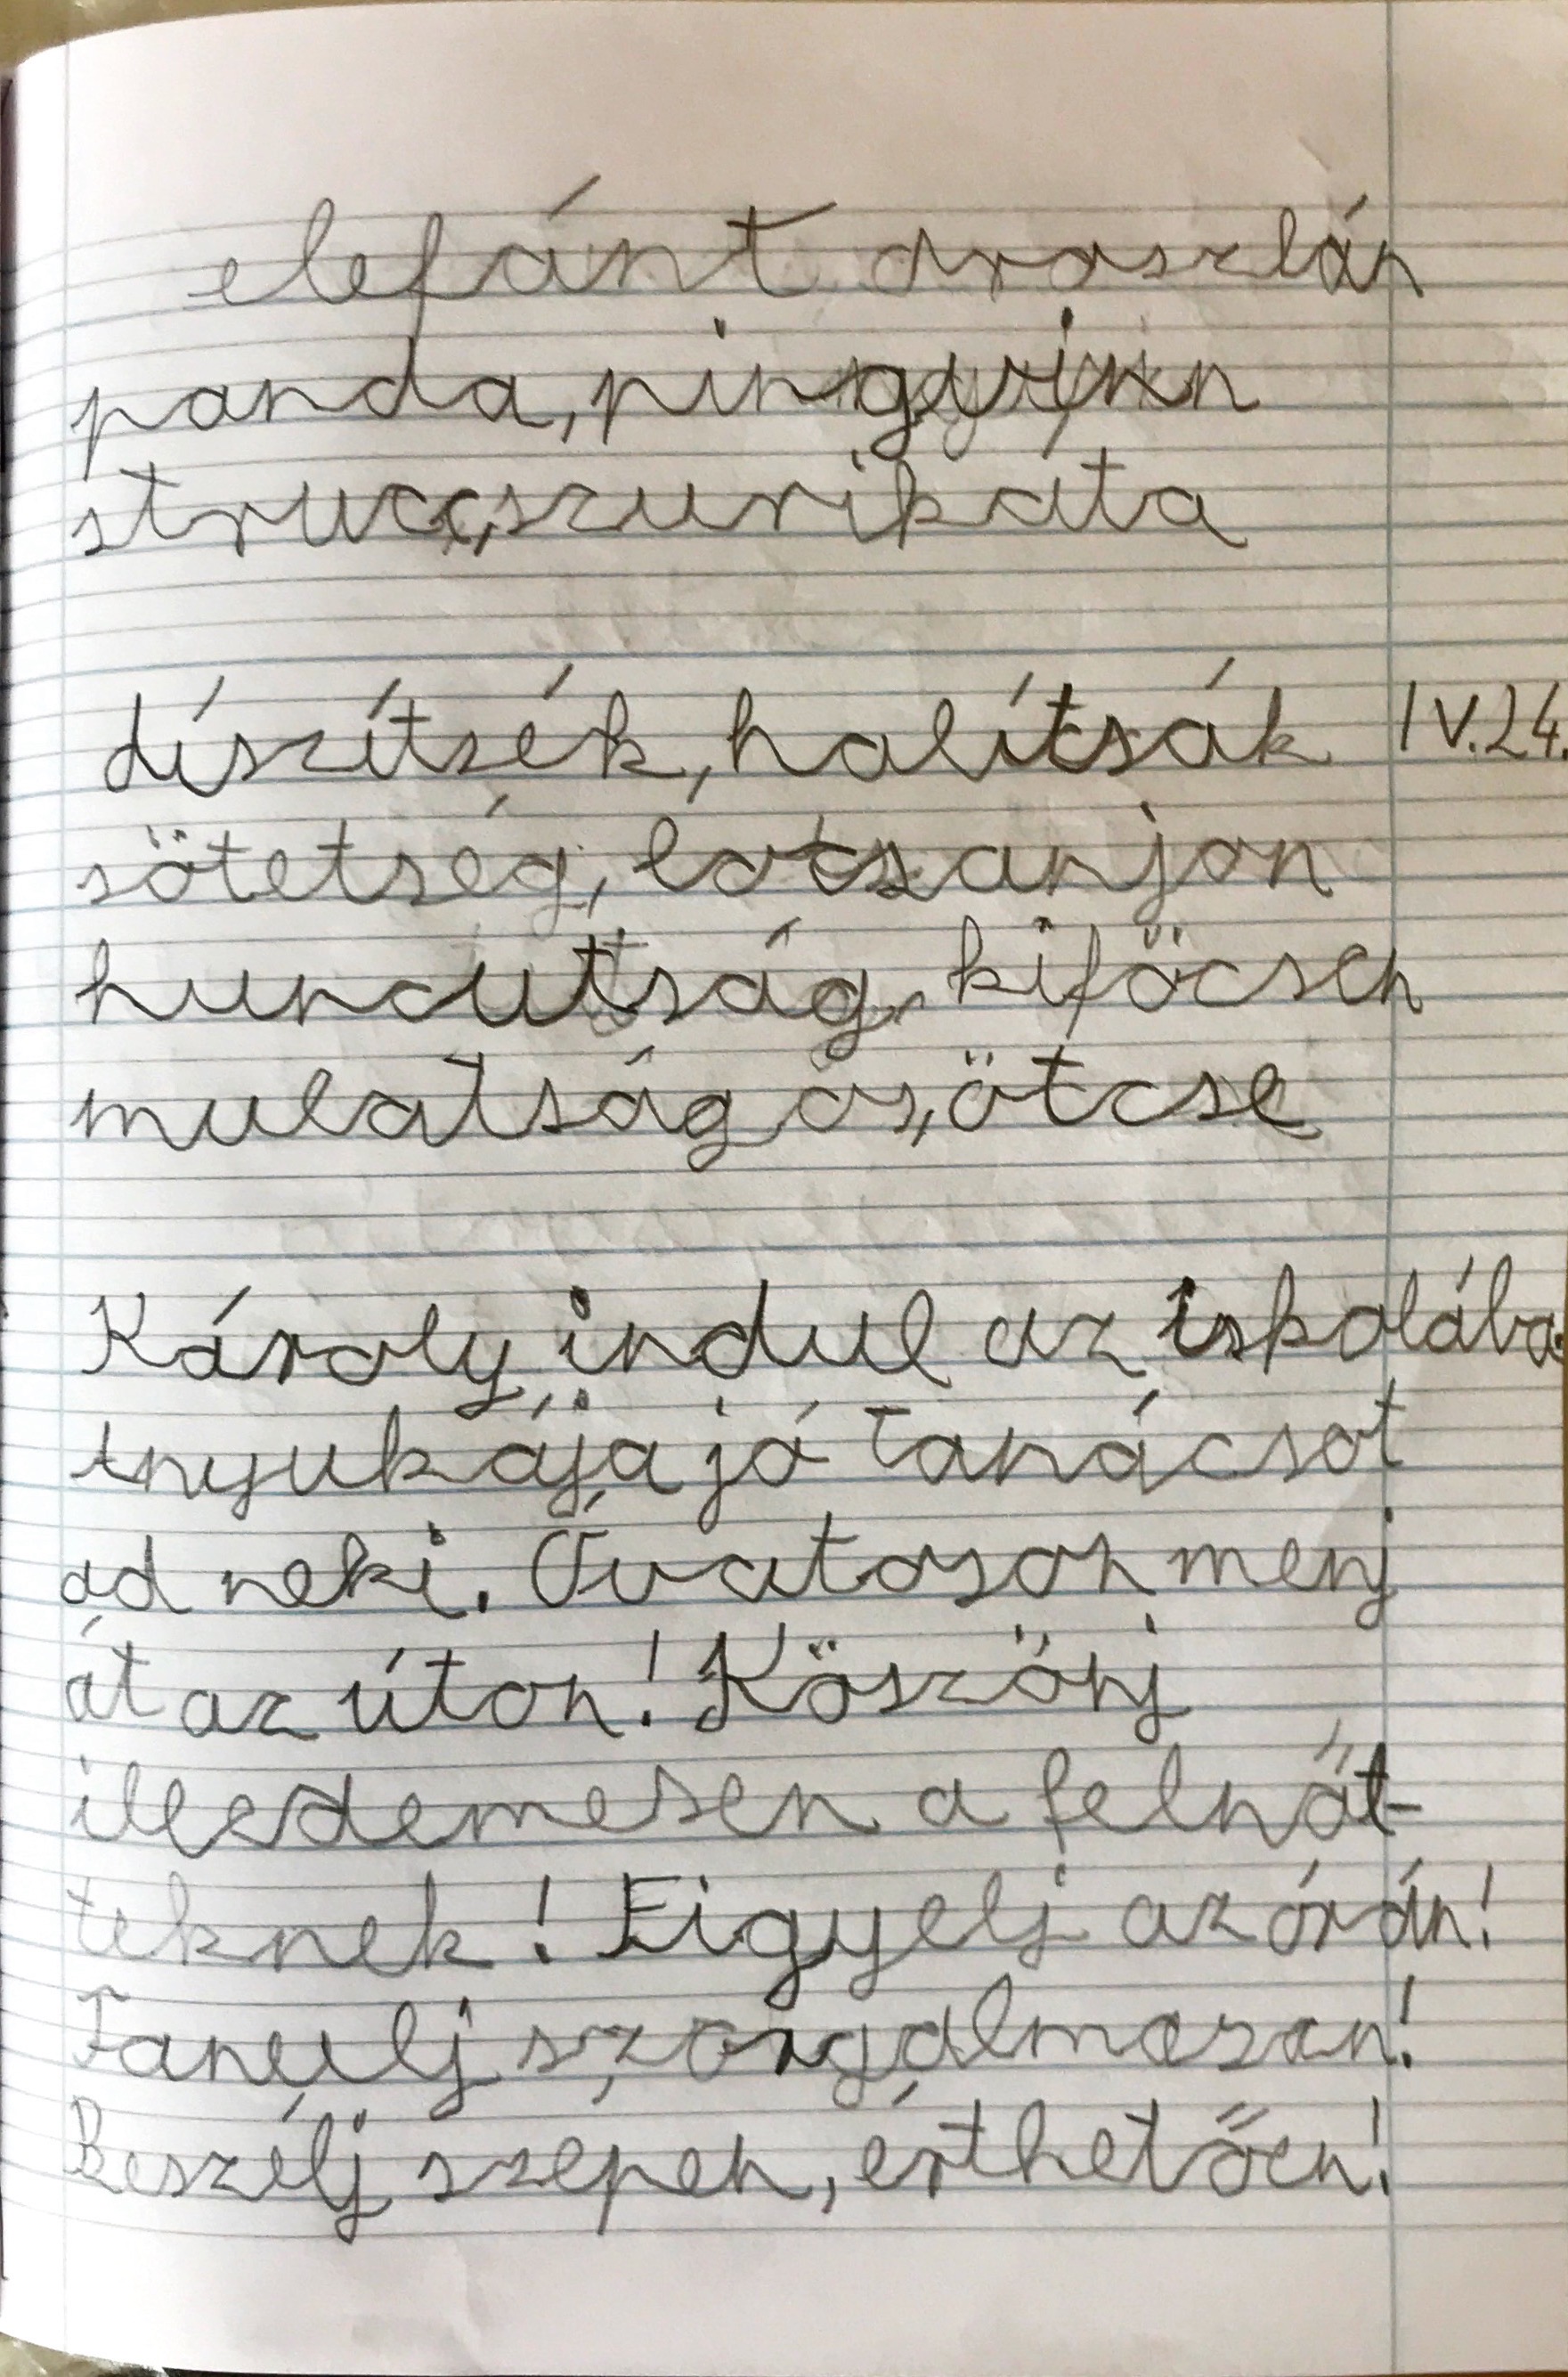 elefánt oroszlán
panda, pingvin
strucc, szurikáta
díszítsék, halítsák IV.24.
sötetség, látszanjon
huncutság, kifőcsen
mulatságos, ötcse
Károly indul az iskolába
anyukája jó tanácsot
ad neki. Óvatoson menj
át az úton! Köszönj
illedemesen a felnőt-
teknek! Figyelj az órán!
Tanulj szorgalmasan!
Beszélj szépen, érthetően!